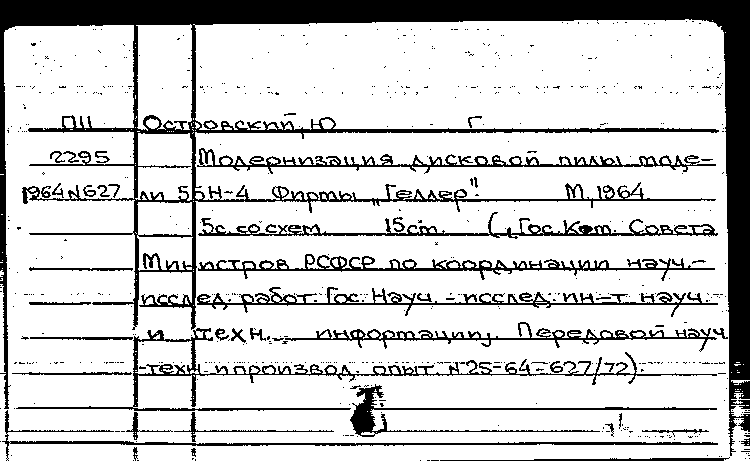 ПII Островский, Ю Г
2295 Модернизация дисковой пилы моде-
1964 N 627 ли 55Н-4 Фирмы „Геллер". М, 1964.
5с. со схем. 15см. („Гос. Ком. Совета
Министров РСФСР по координации науч.-
исслед. работ. Гос. Науч.-исслед. ин-т науч.
и техн. информации, Передовой науч
-техн и производ. опыт. N 25-64-627/72).